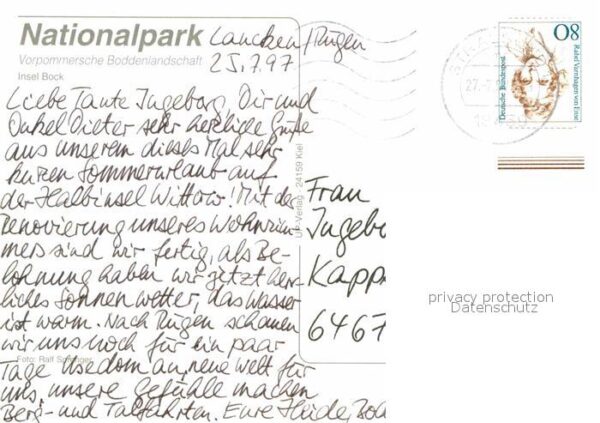 Nationalpark
Vorpommersche Boddenlandschaft
Insel Bock
Lancken/Rügen
25.7.97
Liebe Tante Ingeborg, Dir und
Onkel Dieter sehr herzliche Grüße
aus unserem dieses Mal sehr
kurzen Sommerurlaub auf
der Halbinsel Wittow! Mit der
Renovierung unseres Wohnzim-
mers sind wir fertig, als Be-
lohnung haben wir jetzt herr-
liches Sonnenwetter, das Wasser
ist warm. Nach Rügen schauen
wir uns noch für ein paar
Tage Usedom an, neue Welt für
uns, unsere Gefühle machen
Berg- und Talfahrten. Eure Heide,
Foto: Ralf
UP-Verlag · 24159 Kiel
80
Rahel Varnhagen von Ense
Deutsche Bundespost
STRA
27.
18
Frau
Ingebo
Kapp
6467
privacy protection
Datenschutz